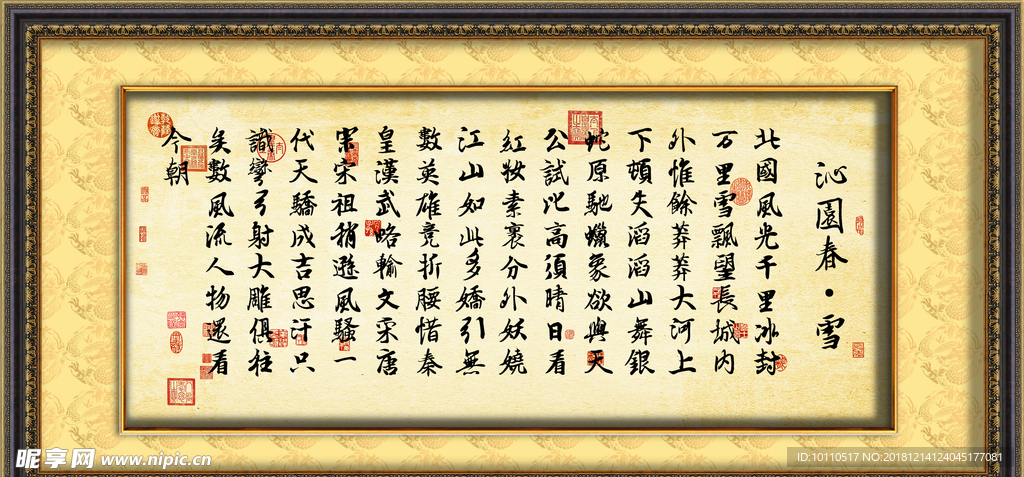 沁園春·雪
北國風光千里冰封
万里雪飄望長城内
外惟餘莽莽大河上
下頓失滔滔山舞銀
蛇原馳蠟象欲與天
公試比高須晴日看
紅妝素裹分外妖嬈
江山如此多嬌引無
數英雄競折腰惜秦
皇漢武略輸文采唐
宗宋祖稍遜風騷一
代天驕成吉思汗只
識彎弓射大雕俱往
矣數風流人物還看
今朝
昵享网 www.nipic.cn
ID:10110517 NO:20181214124045177081